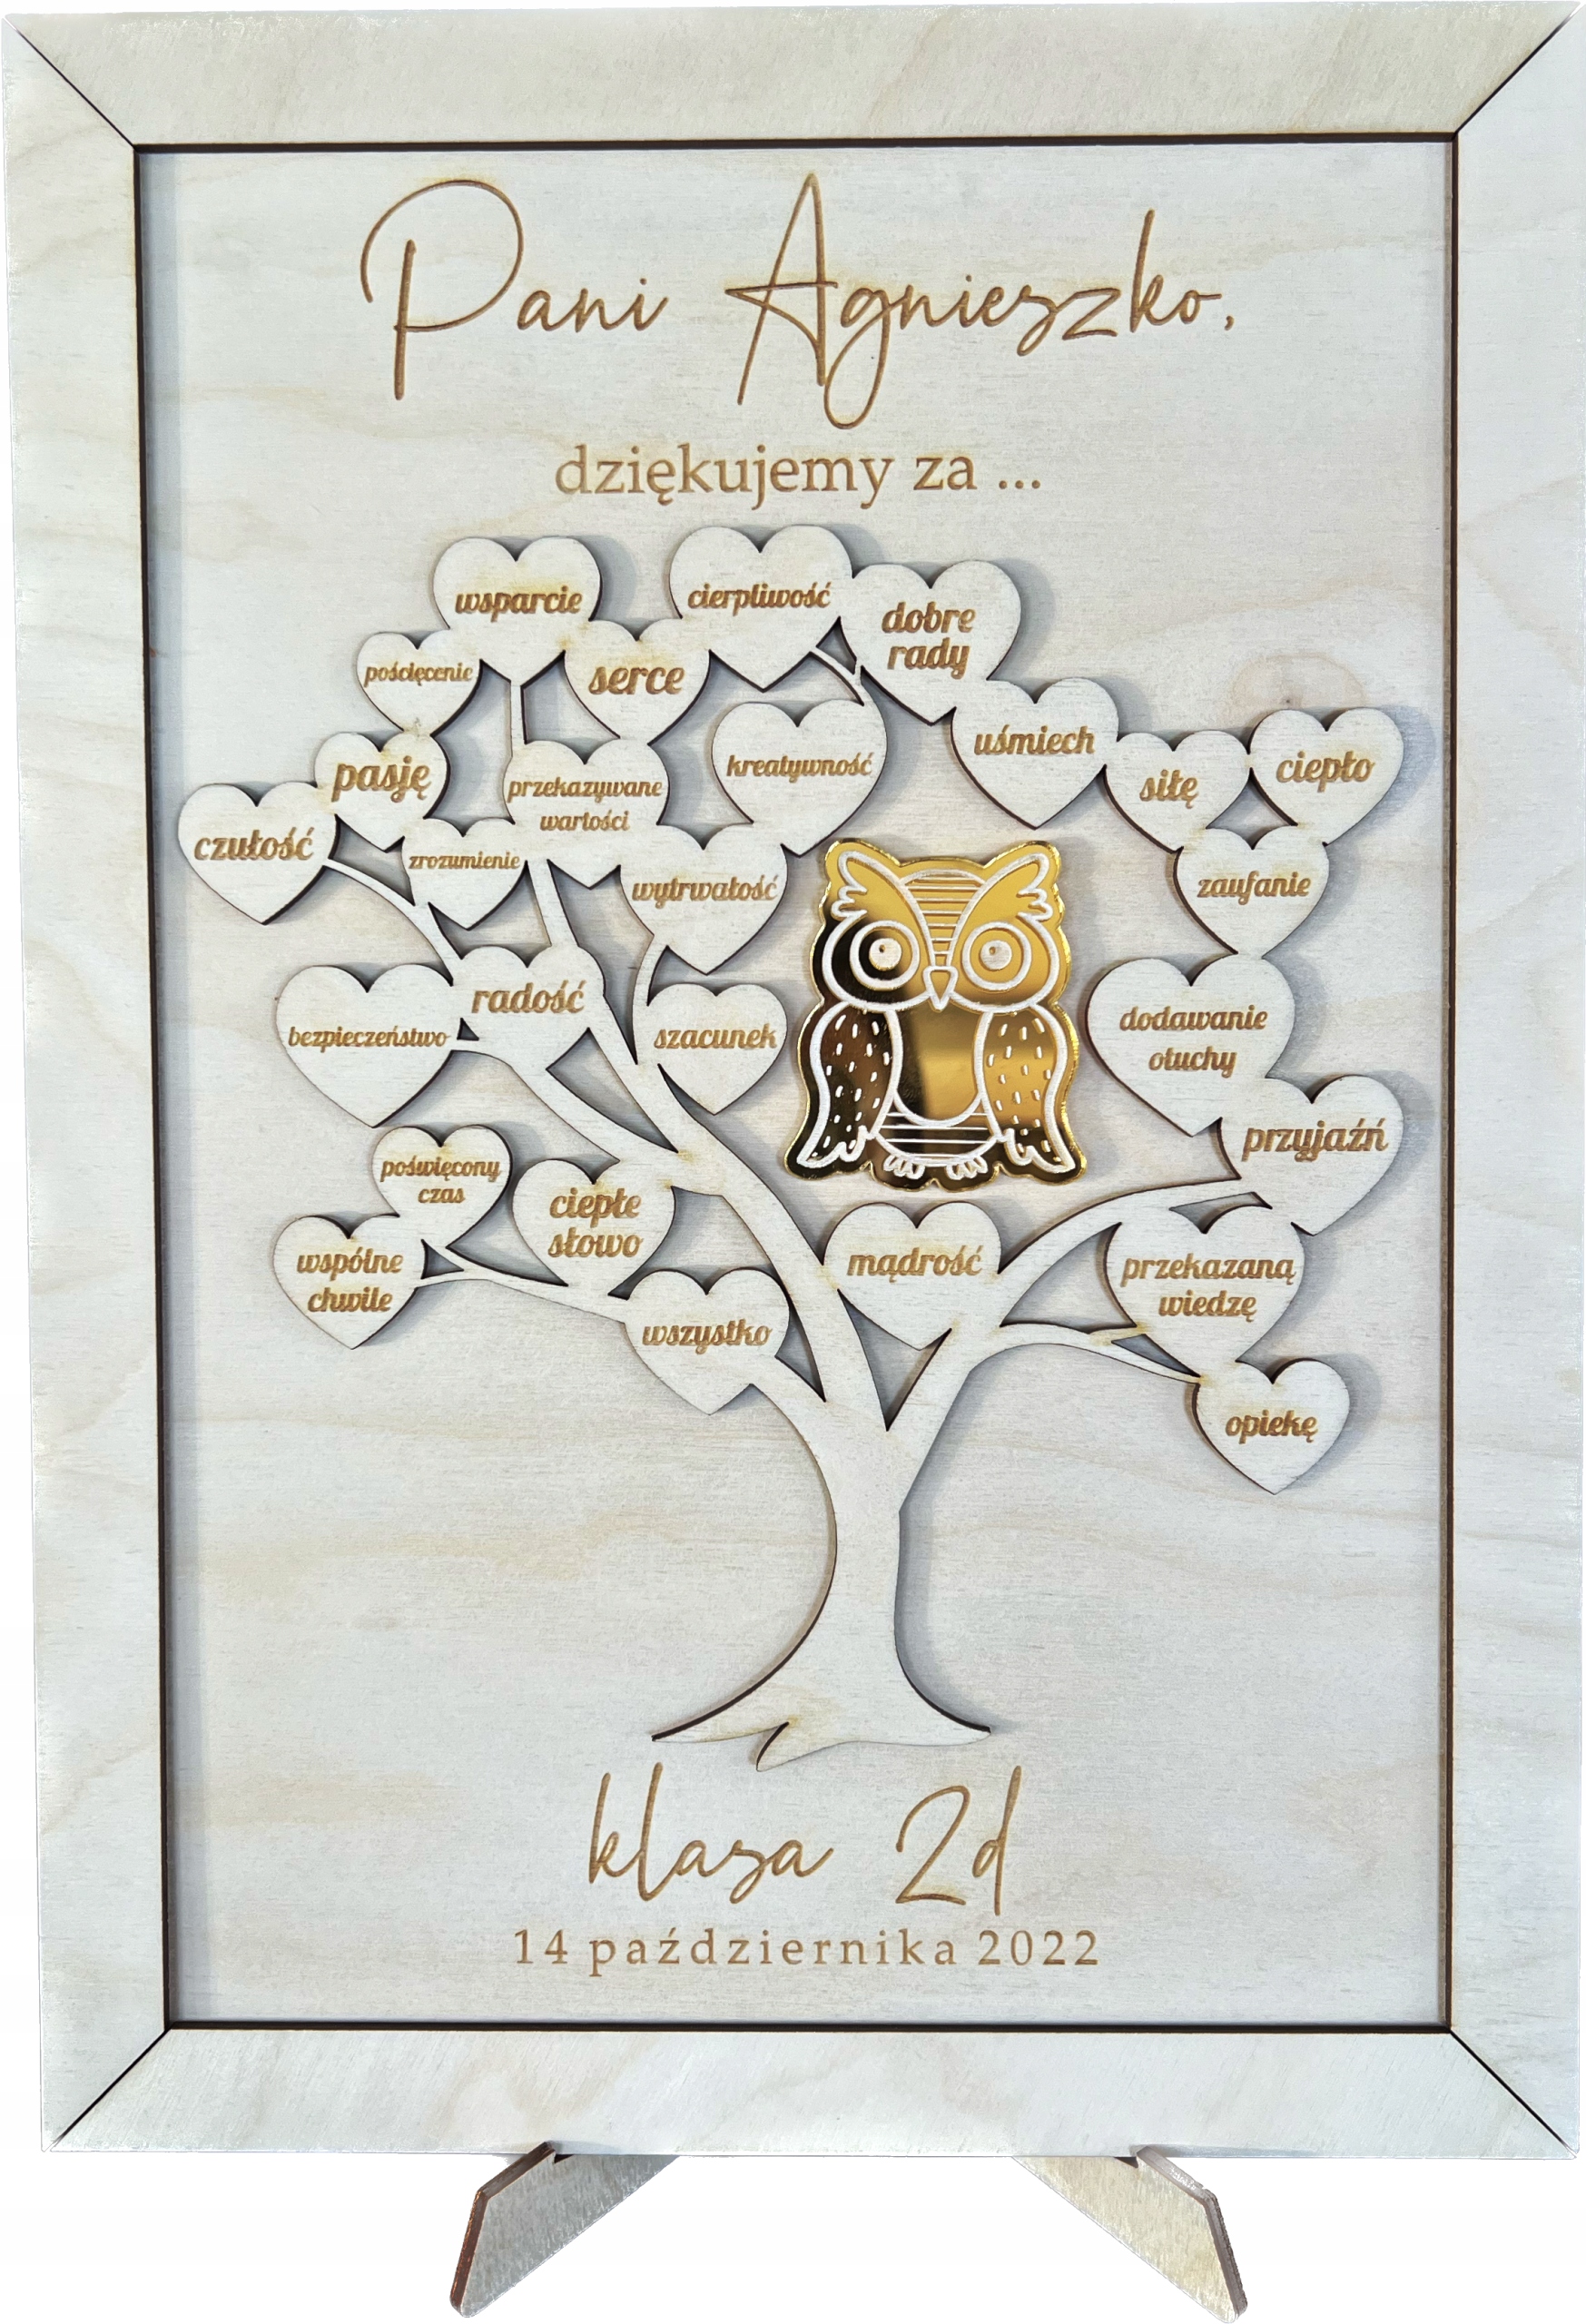 Pani Agnieszko,
dziękujemy za ...
wsparcie
cierpliwość
dobre
rady
pościęcenie
serce
uśmiech
pasję
przekazywane
wartości
kreatywność
siłę
ciepło
czułość
zrozumienie
wytrwałość
zaufanie
bezpieczeństwo
radość
szacunek
dodawanie
otuchy
przyjaźń
poświęcony
czas
ciepłe
słowo
wspólne
chwile
wszystko
mądrość
przekazaną
wiedzę
opiekę
klasa 2d
14 października 2022